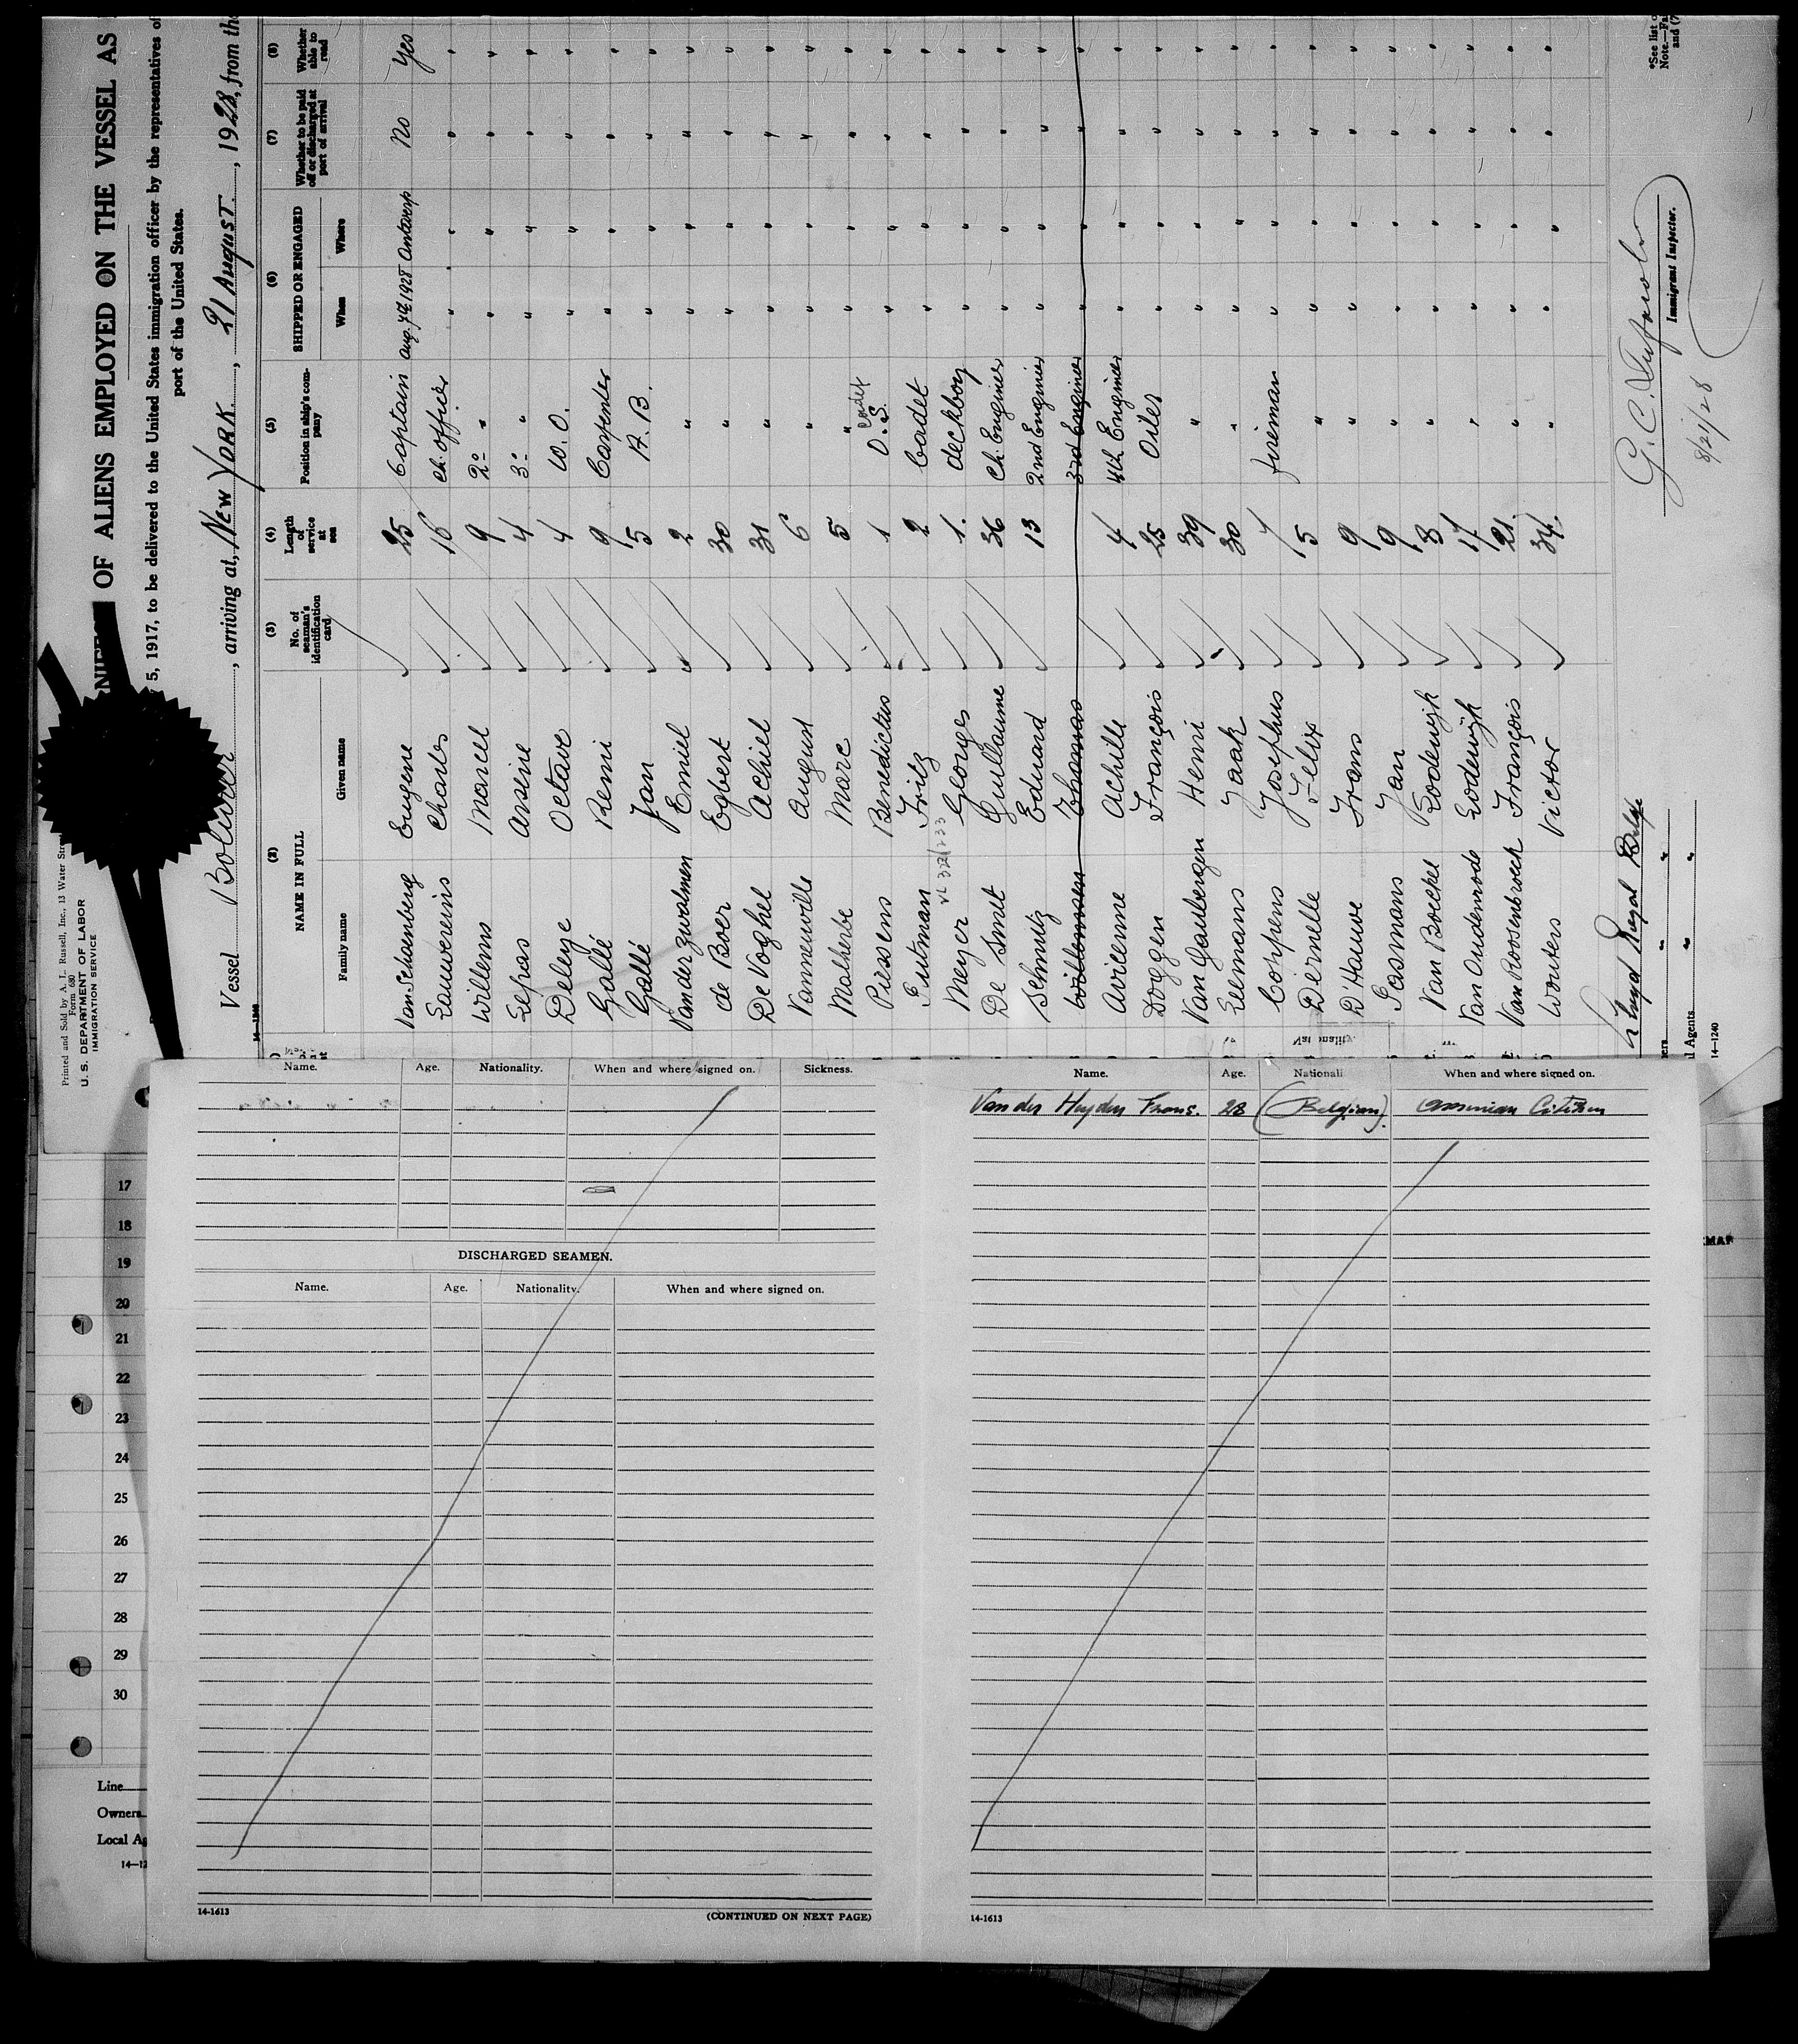 Printed and Sold by A. L. Russell, Inc., 13 Water
Form 680
U. S. DEPARTMENT OF LABOR
IMMIGRATION SERVICE
OF ALIENS EMPLOYED ON THE VESSEL AS
5, 1917, to be delivered to the United States immigration officer by the representatives of
port of the United States.
Vessel, arriving at, New York, 21 August, 1928, from the
(2) (3) (4) (5) (6) (7) (8)
NAME IN FULL No. of seaman's identification card Length of service at sea Position in ship's company SHIPPED OR ENGAGED Whether to be paid off or discharged at port of arrival Whether able to read
Family name Given name When Where
Van Schoenberg Eugene 25 Captain Aug. 7th 1928 Antwerp No Yes
Lauwereins Charles 16 ch. officer " " " "
Willems Marcel 9 2º " " " " "
Arsène 4 3º " " " " "
Octave 4 W. O. " " " "
Gallé Remi 9 Carpenter " " " "
Gallé Jan 5 A. B. " " " "
Van der Zwalmen Emiel 2 " " " " "
de Boer Egbert 30 " " " " "
De Voghel Achiel 31 " " " " "
Vanneuville August 6 " " " " "
Malherbe Marc 5 " " " " "
Piessens Benedictus 1 O. S. " " " "
Putman Fritz 2 Cadet " " " "
Meyer Georges 1. deckboy " " " "
De Smet Guillaume 36 Ch. Enginier " " " "
Schmitz Eduard 13 2nd Enginier " " " "
Willemsen Thomas 3rd Enginier " " " "
Avilenne Achille 4 4th Enginier " " " "
Doggen François 25 Oiler " " " "
Van Gaubergen Henri 39 " " " " "
Eelmans Jaak 30 " " " " "
Coppens Josephus 7 fireman " " " "
Dernelle Felix 5 " " " " "
D'Hauwe Frans 9 " " " " "
Jan 9 " " " " "
Van Boeckel Lodewijk 8 " " " " "
Van Oudenrode Lodewijk 17 " " " " "
Van Roosenbroeck François 21. " " " " "
Wouters Victor 34. " " " " "
Lloyd Royal Belge
Agents
14—1240
Immigrant Inspector.
8/21/28
Name. Age. Nationality. When and where signed on. Sickness.
DISCHARGED SEAMEN.
Name. Age. Nationality. When and where signed on.
14-1613
(CONTINUED ON NEXT PAGE)
Name. Age. Nationali When and where signed on.
Van der Heyden Frans. 28 (Belgian). Citizen
14-1613
17
18
19
20
21
22
23
24
25
26
27
28
29
30
Line
Owners
Local Ag